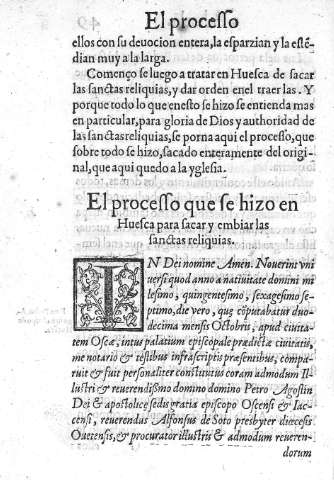 El processo
ellos con su deuocion entera, la esparzian y la estẽ
dian muy a la larga.
Començo se luego a tratar en Huesca de sacar
las sanctas reliquias, y dar orden enel traer las. Y
porque todo lo que enesto se hizo se entienda mas
en particular, para gloria de Dios y authoridad de
las sanctas reliquias, se porna aqui el processo, que
sobre todo se hizo, sacado enteramente del origi
nal, que aqui quedo a la yglesia.
El processo que se hizo en
Huesca para sacar y embiar las
sanctas reliquias.
IN Dei nomine Amen. Nouerint vni
uersi quod anno a natiuitate domini mi
lesimo, quingentesimo, sexagesimo se-
ptimo, die vero, quę cõputabatur duo-
decima mensis Octobris, apud ciuita-
tem Oscæ, intus palatium episcopale prædictæ ciuitatis,
me notario & testibus infrascriptis præsentibus, compa-
ruit & fuit personaliter constitutus coram admodum Il-
lustri & reuerendißimo domino domino Petro Agostin
Dei & apostolicę sedis gratia episcopo Oscensi & Iac-
censi, reuerendus Alfonsus de Soto presbyter diœcesis
Ouetensis, & procurator illustris & admodum reueren-
dorum